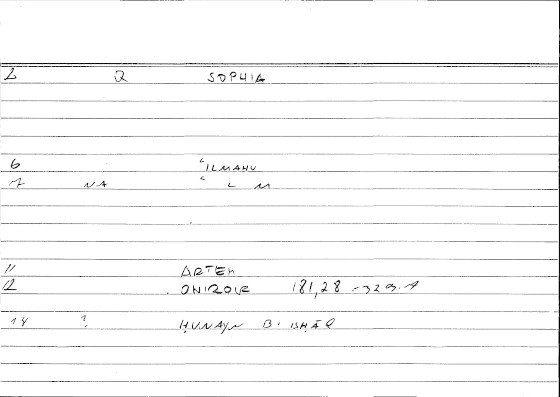 2 Q SOPHIA
6 ʿILMANU
7 NA ʿ L M
11 ARTEM
12 ONIROCR 181,28 - 329.1
14 ? ḤUNAYN B. ISḤĀQ